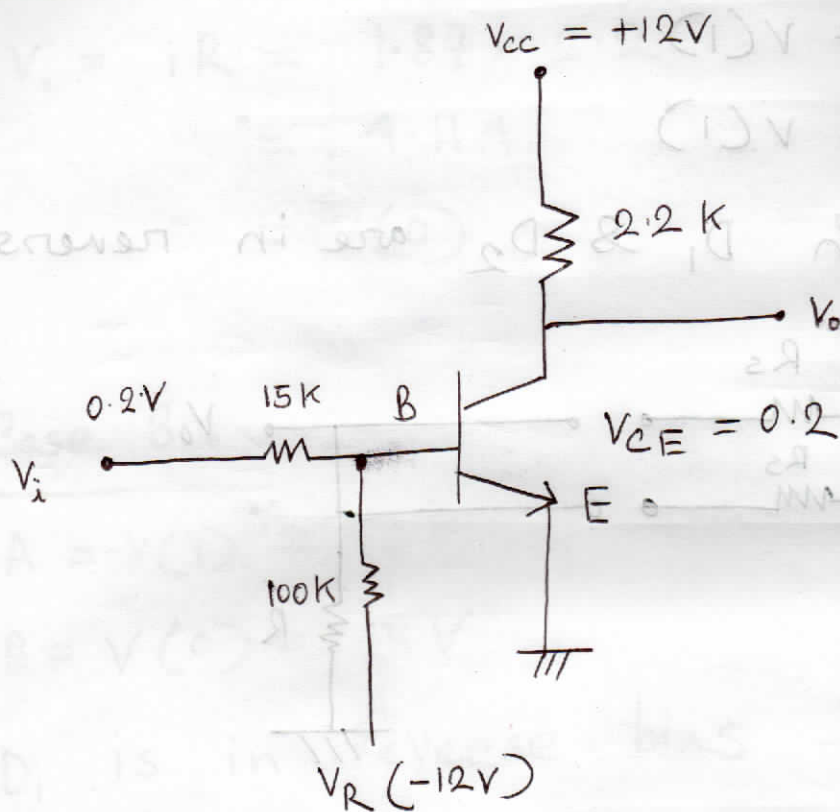 Vcc = +12V
2.2 K
Vo
0.2V
15K
B
VCE = 0.2
Vi
E
100K
VR (-12V)